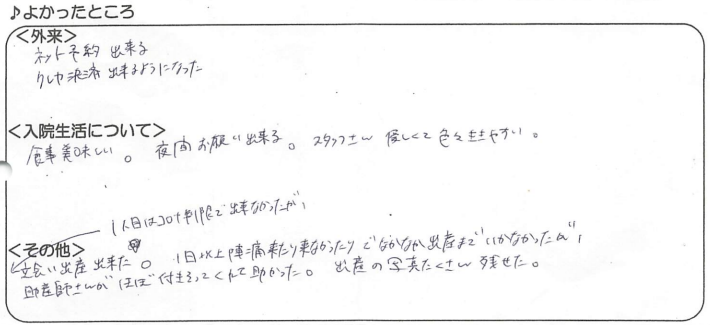 ♪よかったところ
<外来>
ネット予約 出来る
クレカ決済 出来るようになった
<入院生活について>
食事美味しい。 夜間お願い出来る。 スタッフさん 優しくて 色々
1人目はコロナ制限で出来なかったが、
<その他>
立会い出産出来た 。 1日以上陣痛来たり来なかったりでなかなか出産までいかなかったが、
助産師さんが ほぼ付きそってくれて助かった。 出産の写真たくさん 残せた。